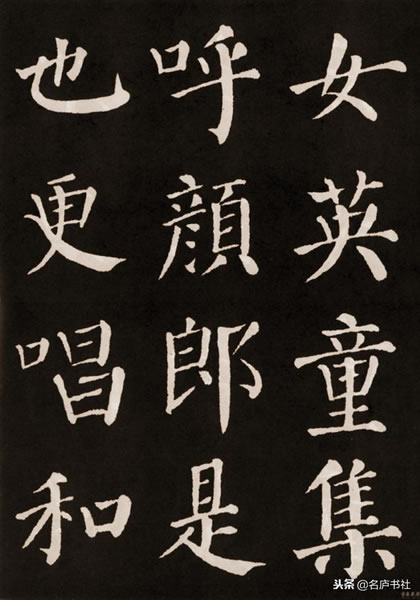 女英童集
呼顔郎是
也更唱和
头条 @名庐书社